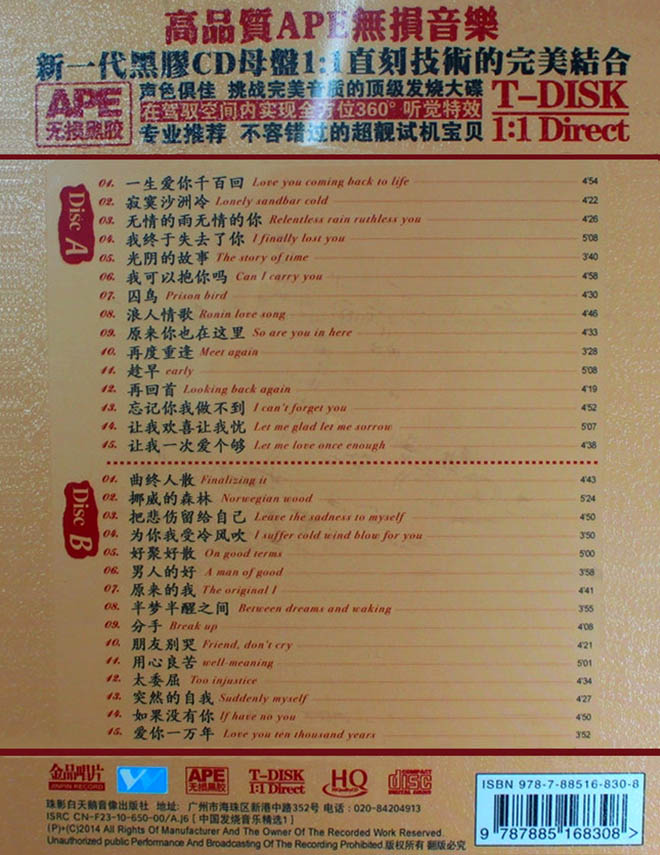 高品質APE無損音樂
新一代黑膠CD母盤1:1直刻技術的完美結合
APE
无损黑胶
声色俱佳 挑战完美音质的顶级发烧大碟
在驾驭空间内实现全方位360°听觉特效
专业推荐 不容错过的超靓试机宝贝
T-DISK
1:1 Direct
Disc A
01. 一生爱你千百回 Love you coming back to life 4'54
02. 寂寞沙洲冷 Lonely sandbar cold 4'22
03. 无情的雨无情的你 Relentless rain ruthless you 4'26
04. 我终于失去了你 I finally lost you 5'08
05. 光阴的故事 The story of time 3'40
06. 我可以抱你吗 Can I carry you 4'58
07. 囚鸟 Prison bird 4'30
08. 浪人情歌 Ronin love song 4'46
09. 原来你也在这里 So are you in here 4'33
10. 再度重逢 Meet again 3'28
11. 趁早 early 5'08
12. 再回首 Looking back again 4'19
13. 忘记你我做不到 I can't forget you 4'52
14. 让我欢喜让我忧 Let me glad let me sorrow 5'07
15. 让我一次爱个够 Let me love once enough 4'38
Disc B
01. 曲终人散 Finalizing it 4'43
02. 挪威的森林 Norwegian wood 5'24
03. 把悲伤留给自己 Leave the sadness to myself 4'50
04. 为你我受冷风吹 I suffer cold wind blow for you 3'50
05. 好聚好散 On good terms 5'00
06. 男人的好 A man of good 3'58
07. 原来的我 The original I 4'41
08. 半梦半醒之间 Between dreams and waking 3'55
09. 分手 Break up 4'08
10. 朋友别哭 Friend, don't cry 4'21
11. 用心良苦 well-meaning 5'01
12. 太委屈 Too injustice 4'34
13. 突然的自我 Suddenly myself 4'27
14. 如果没有你 If have no you 4'50
15. 爱你一万年 Love you ten thousand years 3'52
金品唱片
JINPIN RECORD
APE
无损黑胶
T-DISK
1:1 Direct
HQ
COMPACT
disc
DIGITAL AUDIO
珠影白天鹅音像出版社 地址: 广州市海珠区新港中路352号 电话:020-84204913
ISRC CN-F23-10-650-00/A.J6 [ 中国发烧音乐精选1 ]
(P)+(C)2014 All Rights Of Manufacturer And The Owner Of The Recorded Work Reserved.
Unauthorized public Performance And Broadcasting Of The Recording Prohibited.版权所有 翻版必究
ISBN 978-7-88516-830-8
9 787885 168308 >